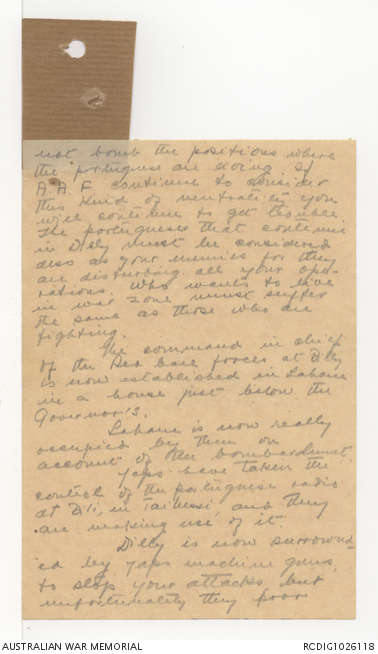 not bomb the positions where
the portuguese are doing. If
A A F continue to consider
this kind of neutrality you
will continue to get trouble.
The portugueses that continue
in Dilly must be considered
also as your enemies for they
are disturbing all your ope-
rations. Who wants to live
in war zone must suffer
the same as those who are
fighting.
The command in chief
of the Sea base forces at Dilly
is now established in Lahane
in a house just below the
Governor's.
Lahane is now really
occupied by them on
account of the bombardment.
Japs have taken the
control of the portuguese radio
at Dili, in Taibessi and they
are making use of it.
Dilly is now surround-
ed by Japs machine guns,
to stop your attacks but
unfortunality they poor
AUSTRALIAN WAR MEMORIAL
RCDIG1026118